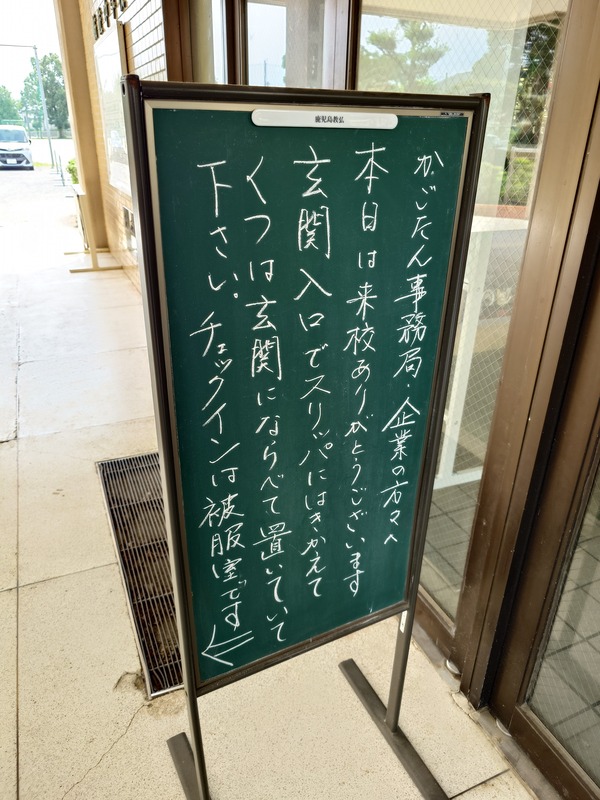 鹿児島教弘
かごたん事務局・企業の方々へ
本日は来校ありがとうございます
玄関入口でスリッパにはきかえて
くつは玄関にならべて置いていて
下さい。チェックインは被服室です